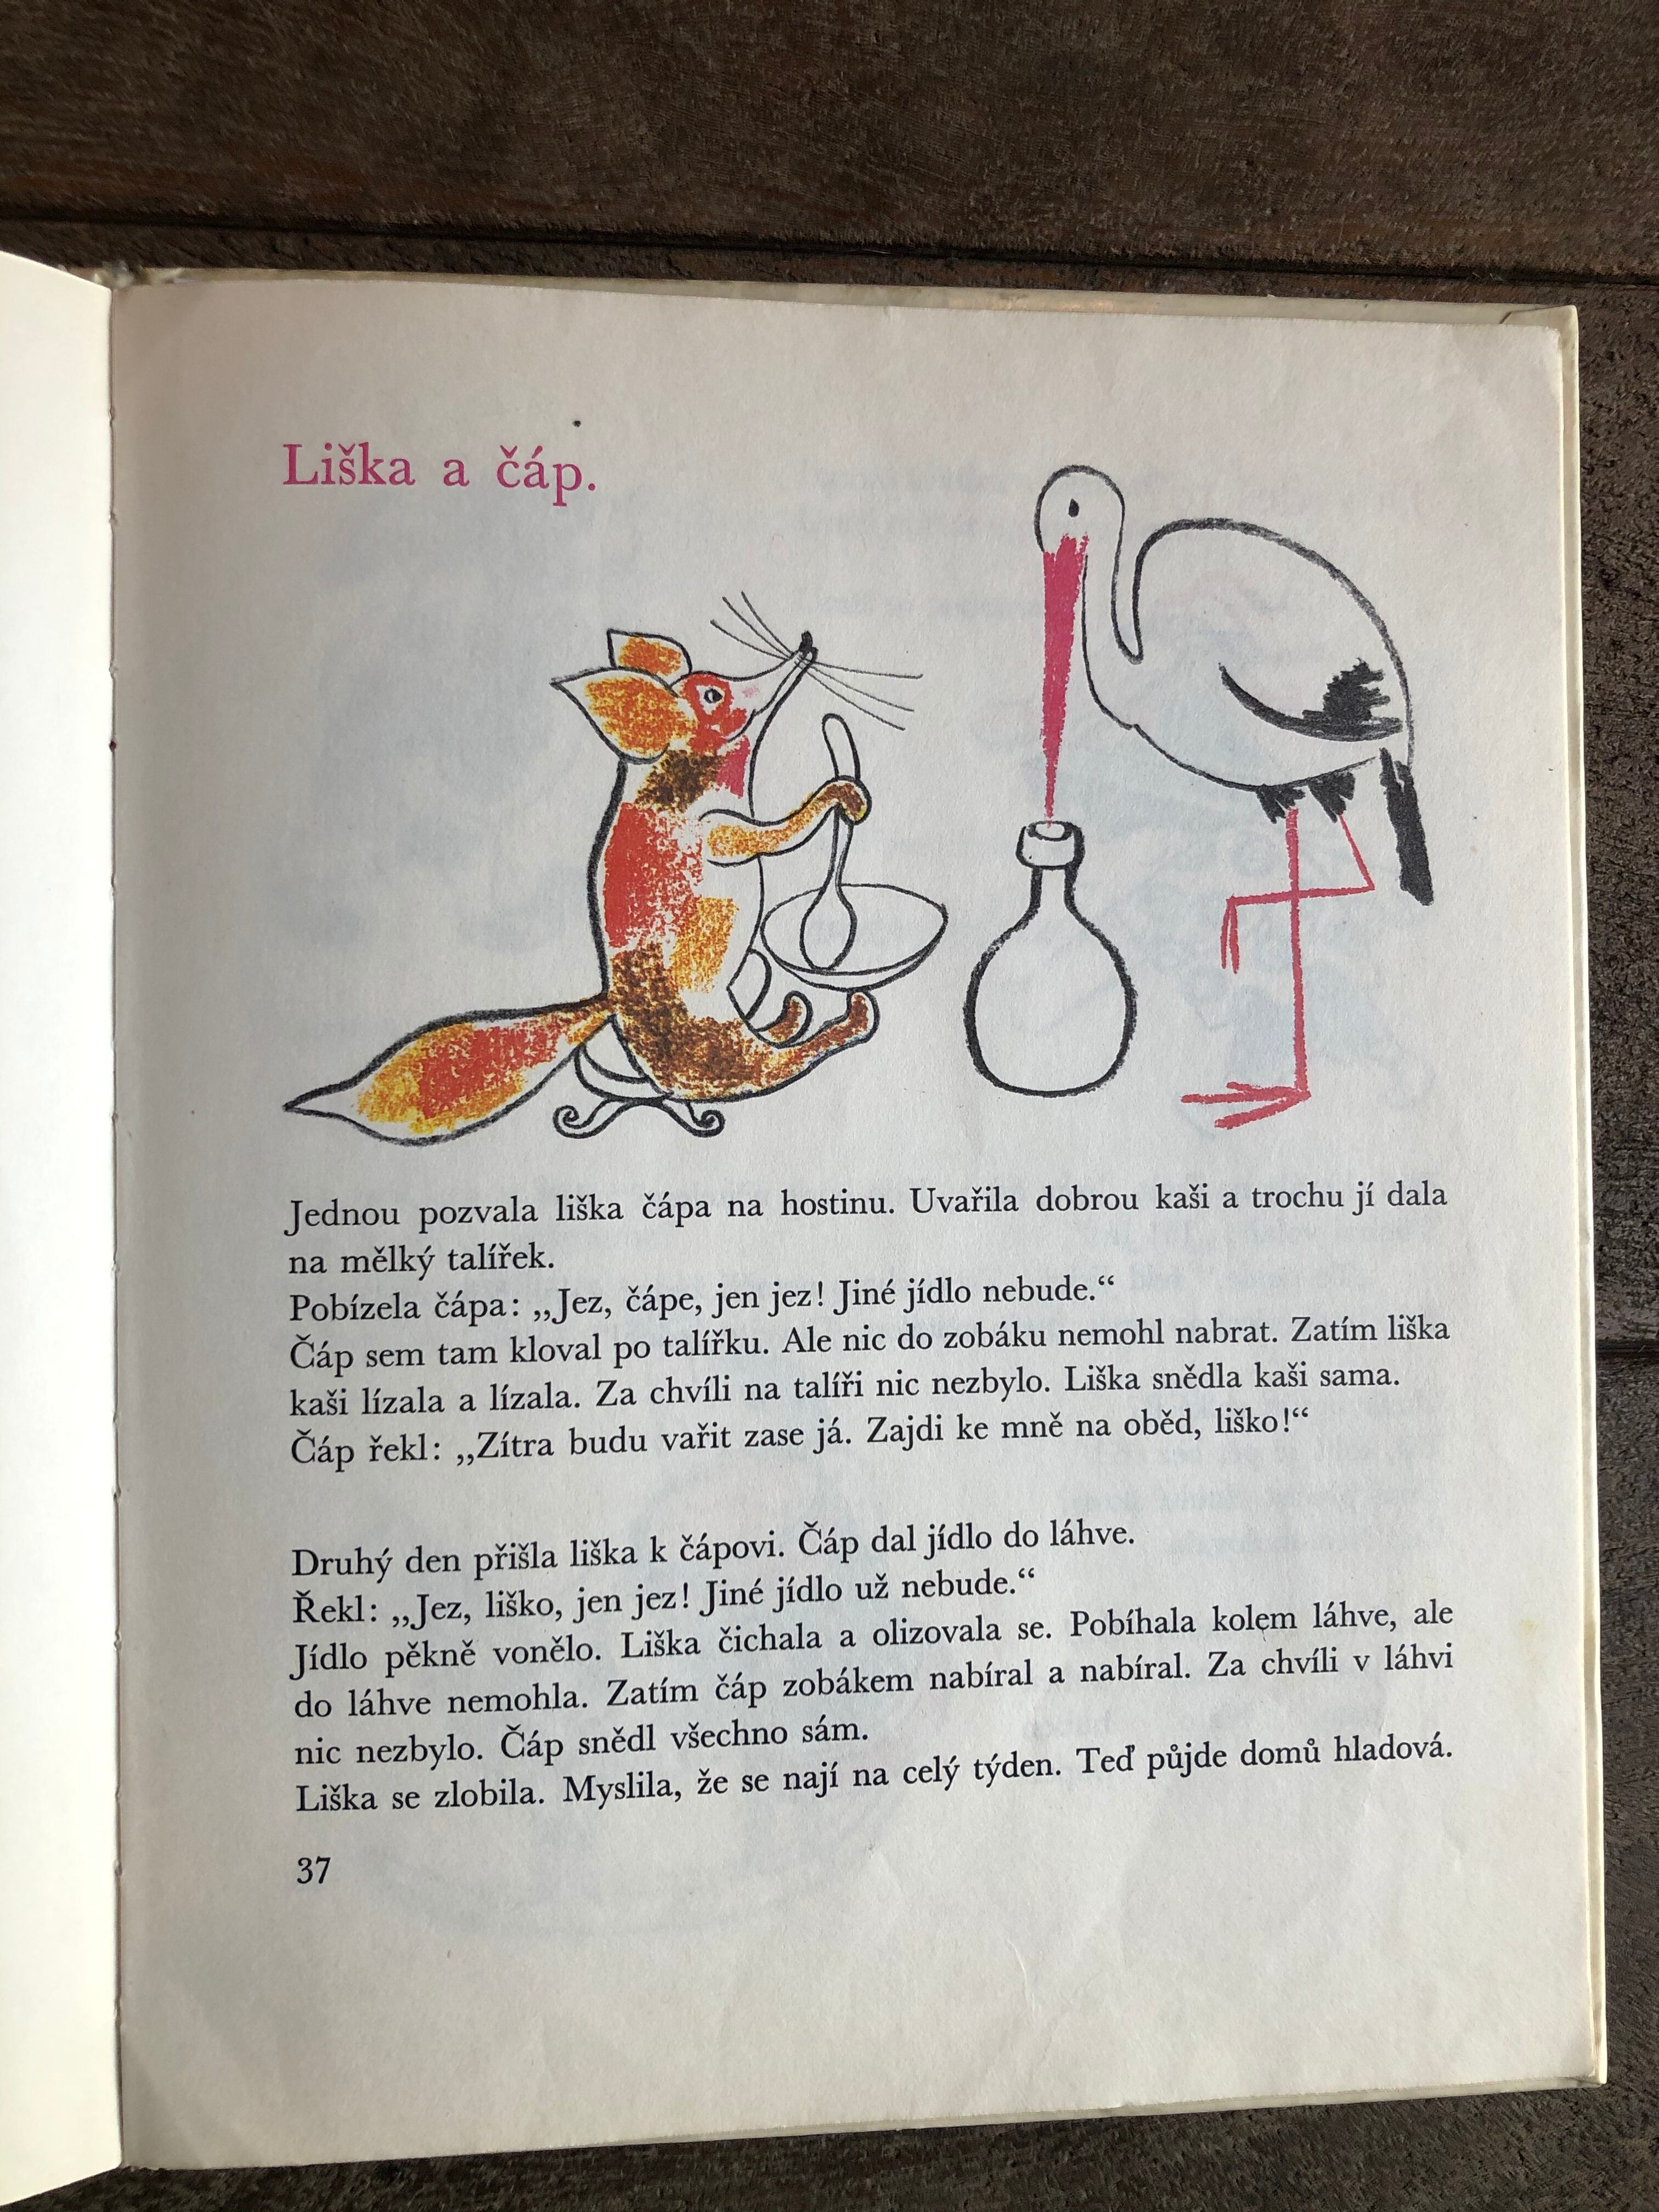 Liška a čáp.
Jednou pozvala liška čápa na hostinu. Uvařila dobrou kaši a trochu jí dala
na mělký talířek.
Pobízela čápa: „Jez, čápe, jen jez! Jiné jídlo nebude.“
Čáp sem tam kloval po talířku. Ale nic do zobáku nemohl nabrat. Zatím liška
kaši lízala a lízala. Za chvíli na talíři nic nezbylo. Liška snědla kaši sama.
Čáp řekl: „Zítra budu vařit zase já. Zajdi ke mně na oběd, liško!“
Druhý den přišla liška k čápovi. Čáp dal jídlo do láhve.
Řekl: „Jez, liško, jen jez! Jiné jídlo už nebude.“
Jídlo pěkně vonělo. Liška čichala a olizovala se. Pobíhala kolem láhve, ale
do láhve nemohla. Zatím čáp zobákem nabíral a nabíral. Za chvíli v láhvi
nic nezbylo. Čáp snědl všechno sám.
Liška se zlobila. Myslila, že se nají na celý týden. Teď půjde domů hladová.
37